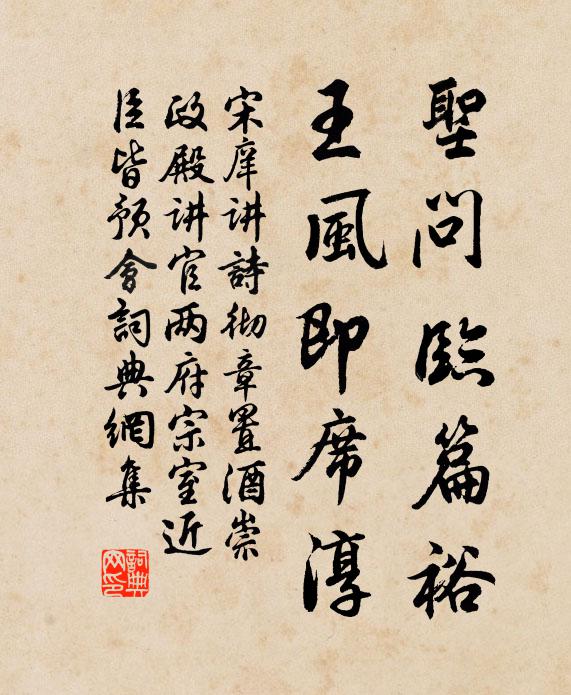 聖問臨篇裕
王風即席淳
宋庠讲詩彻章置酒崇
政殿讲官两府宗室近
臣皆预會詞典網集
詞典
网印